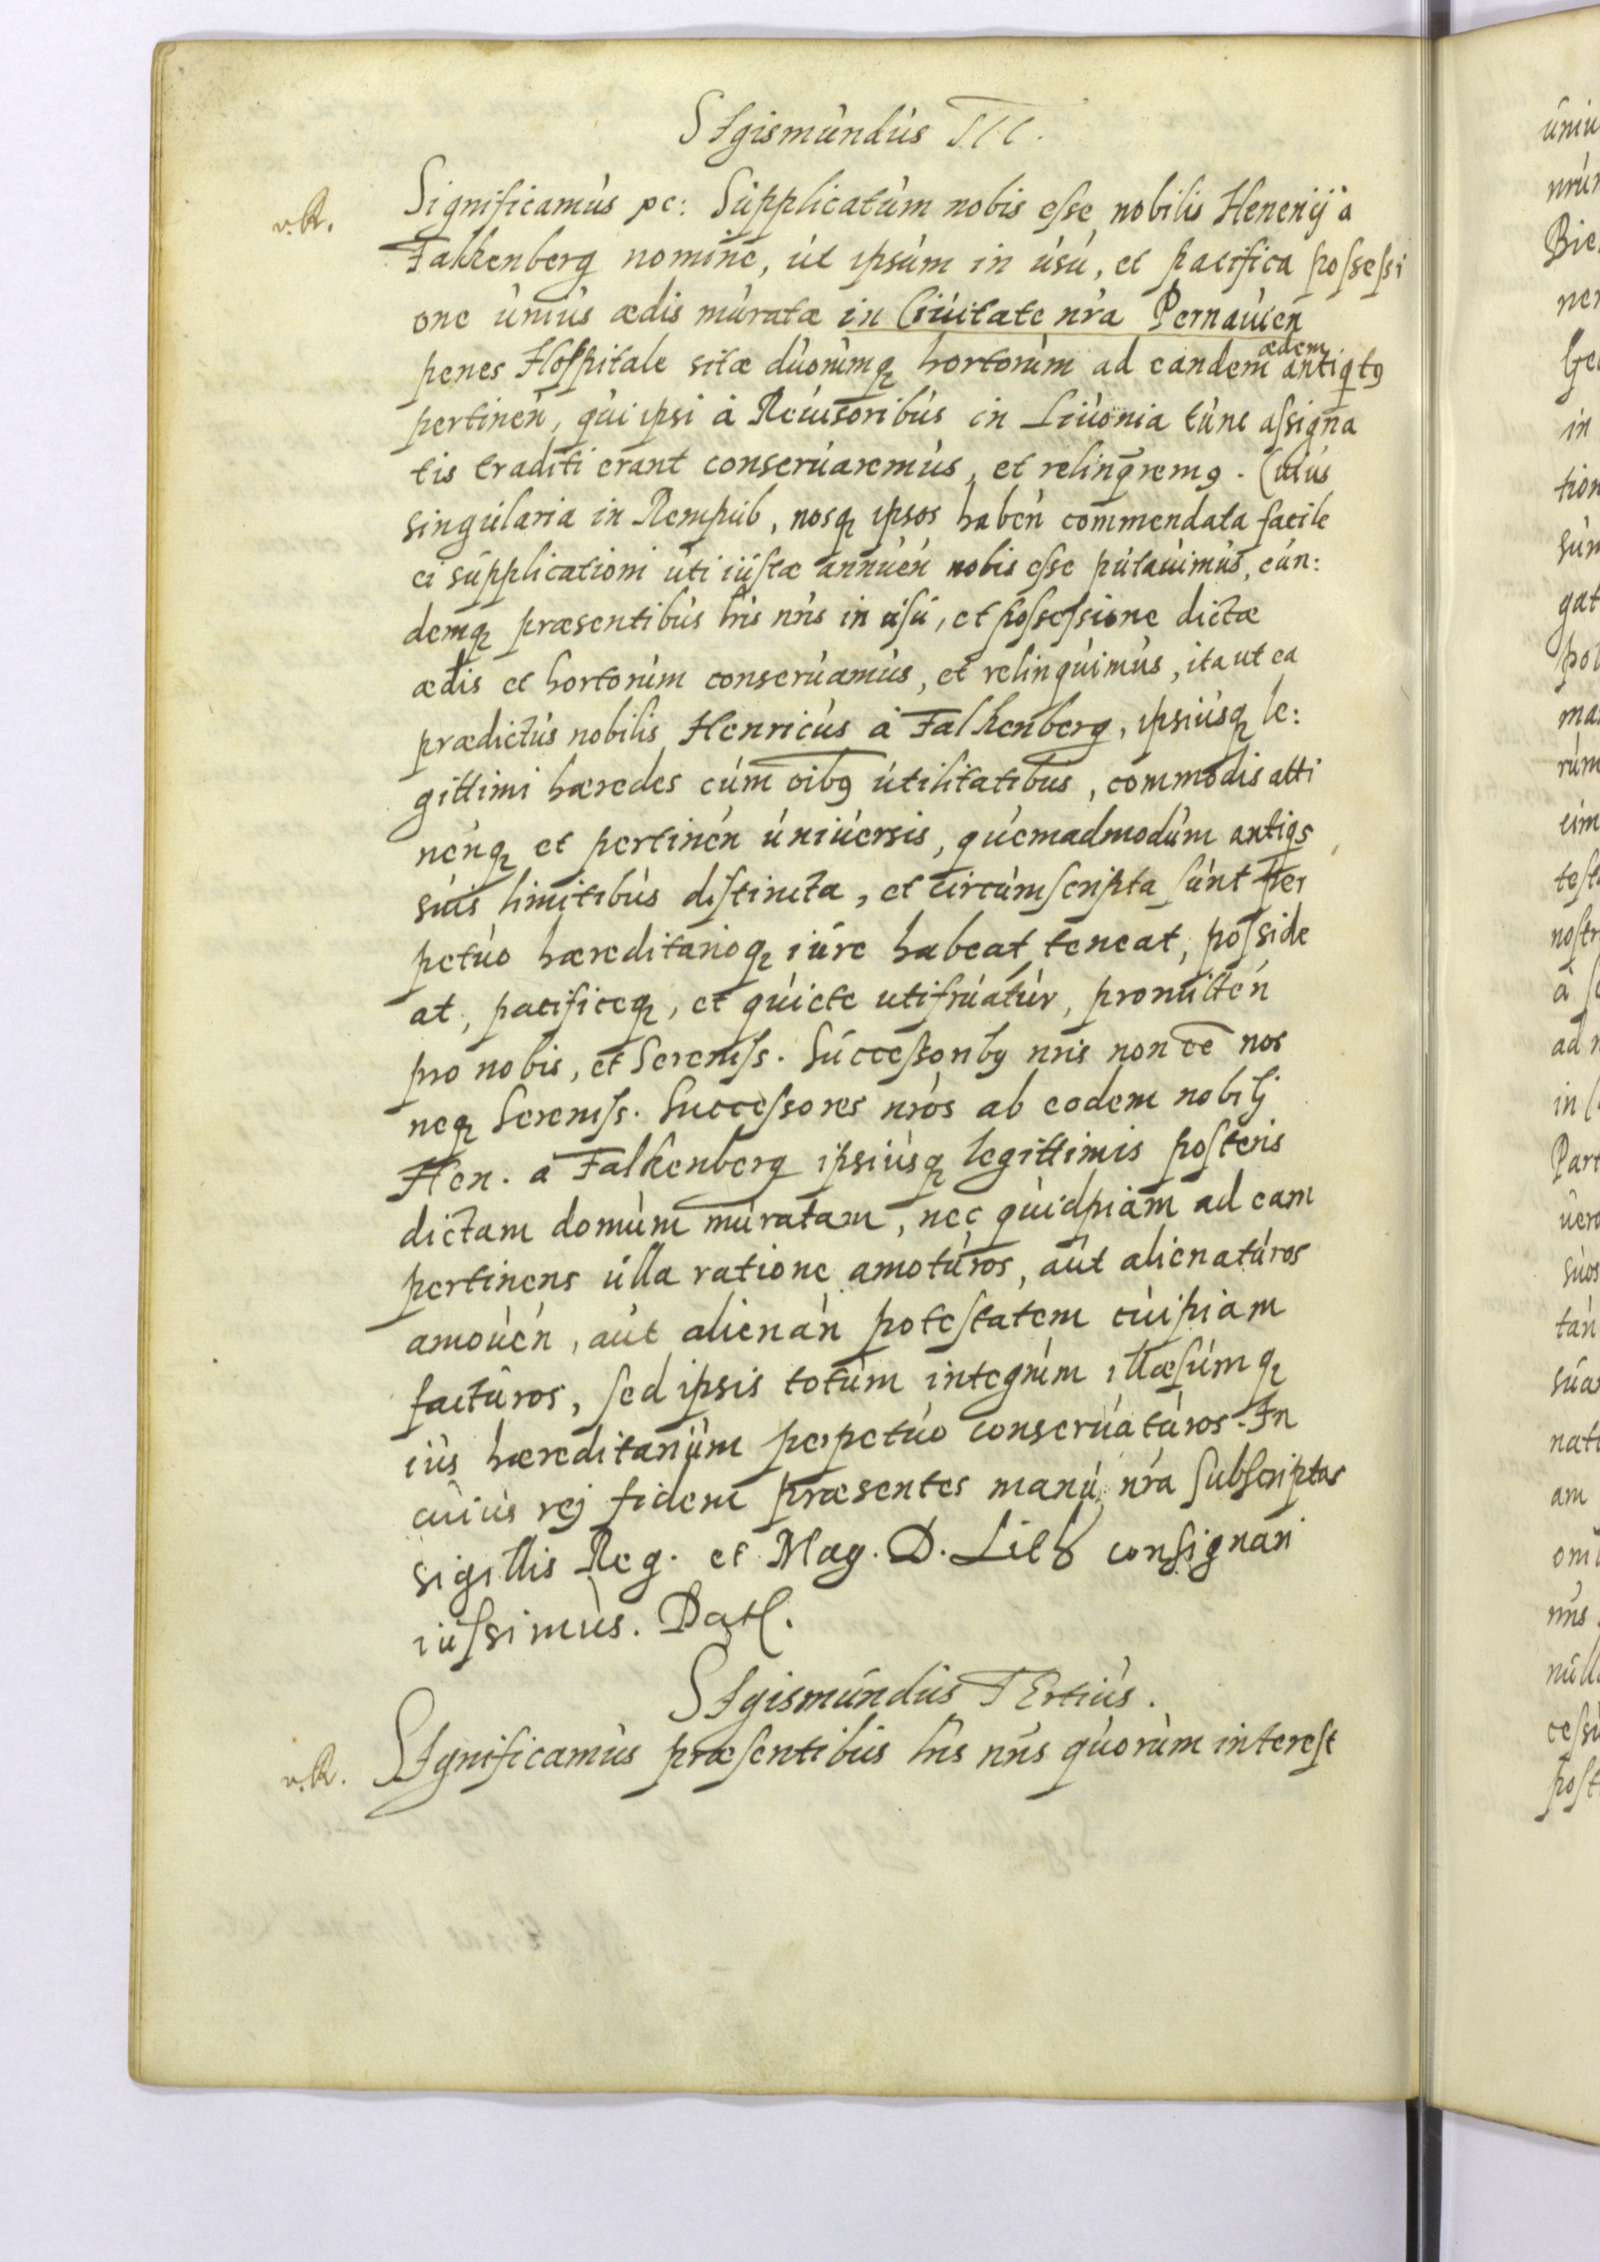 SIgismundus III.
v.R.
Significamus pc: Supplicatum nobis esse, nobilis Henrnij à
Falkenberg nomine, ut ipsum in usu, et pacifica possessi
one unius ædis muratæ in Ciuitate nra Pernauien
penes Hospitale sitæ duorumq hortorum ad eandem ædem antiqt9
pertinen, qui ipsi à Reuisoribus in Liuonia tunc assigna
tis traditi erant conseruaremus, et relinqrem9. Cuius
singularia in Rempub, nosq ipsos haben commendata facile
ei supplicationi uti iustæ annuen nobis esse putauimus, eun:
demq præsentibus lris nris in usu, et possessione dictæ
ædis et hortorum conseruamus, et relinquimus, ita ut ea
prædictus nobilis Henricus à Falkenberg, ipsiusq le:
gittimi hæredes cum oib9 utilitatibus, commodis atti
nenq et pertinen uniuersis, quemadmodum antiqs
suis limitibus distincta, et circumscripta sunt per
petuo hæreditarioq iure habeat, teneat, posside
at, pacificeq, et quiete utifruatur, promitten
pro nobis, et Sereniss. Successorib9 nris non ee nos
neq Sereniss. Successores nros ab eodem nobilj
Hen. à Falkenberg ipsiusq legittimis posteris
dictam domum muratam, nec quidpiam ad eam
pertinens ulla ratione amoturos, aut alienaturos
amouen, aut alienan potestatem cuipiam
facturos, sed ipsis totum integrum illæsumq
ius hæreditarium perpetuo conseruaturos. In
cuius rej fidem præsentes manu nra subscriptas
sigillis Reg. et Mag. D. Lith consignari
iussimus. Dat.
SIgismundus TErtius.
v.R.
SIgnificamus præsentibus lris nris quorum interest